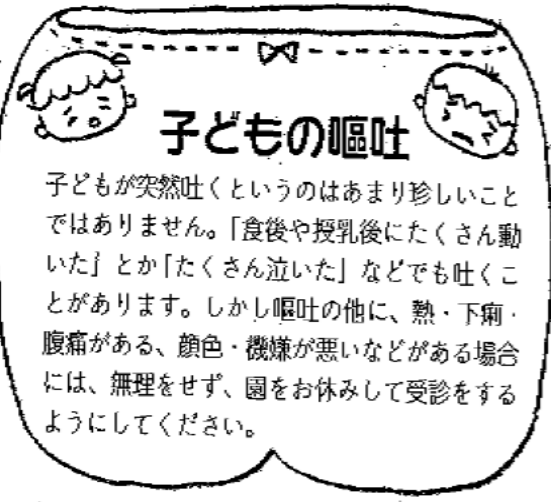 子どもの嘔吐
子どもが突然吐くというのはあまり珍しいこと
ではありません。「食後や授乳後にたくさん動
いた」とか「たくさん泣いた」などでも吐くこ
とがあります。しかし嘔吐の他に、熱・下痢・
腹痛がある、顔色・機嫌が悪いなどがある場合
には、無理をせず、園をお休みして受診をする
ようにしてください。